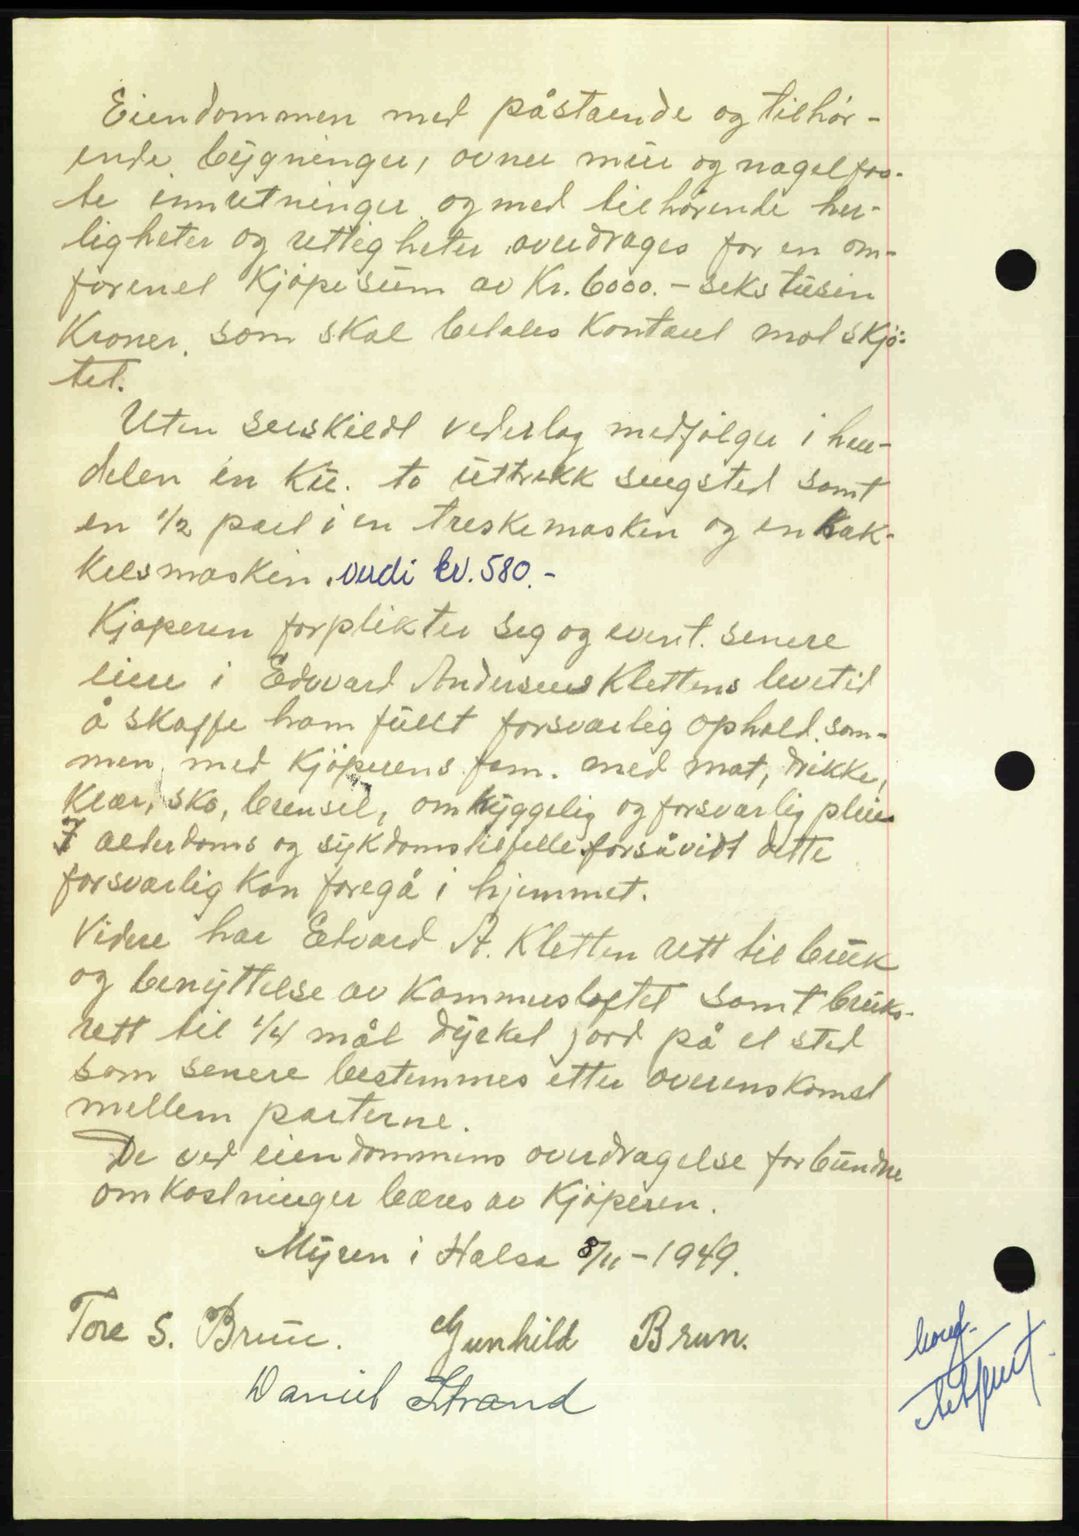 Eiendommen med påstående og tilhør-
ende bygninger, ovner mur og nagelfas-
te innretninger og med tilhørende her-
ligheter og rettigheter overdrages for en om-
forenet Kjøpesum av Kr. 6000.- seks tusen
Kroner, som skal betales Kontant mot skjø-
tet.
Uten særskildt vederlag medfølger i han-
delen en Ku. to uttrekk sengsted samt
en 1/2 part i en treskemaskin og en hak-
kelsmaskin. verdi kr. 580.-
Kjøperen forplikter seg og event. senere
eiere i Edvard Andersens Klettens levetid
å skaffe ham fullt forsvarlig ophold. sam-
men med Kjøperens fam. med mat, drikke,
Klær, sko, brensel, omhyggelig og forsvarlig pleie
I alderdoms og sykdomstilfelle forsåvidt dette
forsvarlig Kan foregå i hjemmet.
Videre har Edvard A. Kletten rett til bruk
og benyttelse av Kammersloftet samt bruks-
rett til 1/4 mål dyrket jord på et sted
som senere bestemmes etter overenskomst
mellem parterne.
De ved eiendommens overdragelse forbundne
omkostninger bæres av Kjøperen.
Myren i Halsa 8/11-1949.
Tore S. Brun. Gunhild Brun.
Daniel Strand